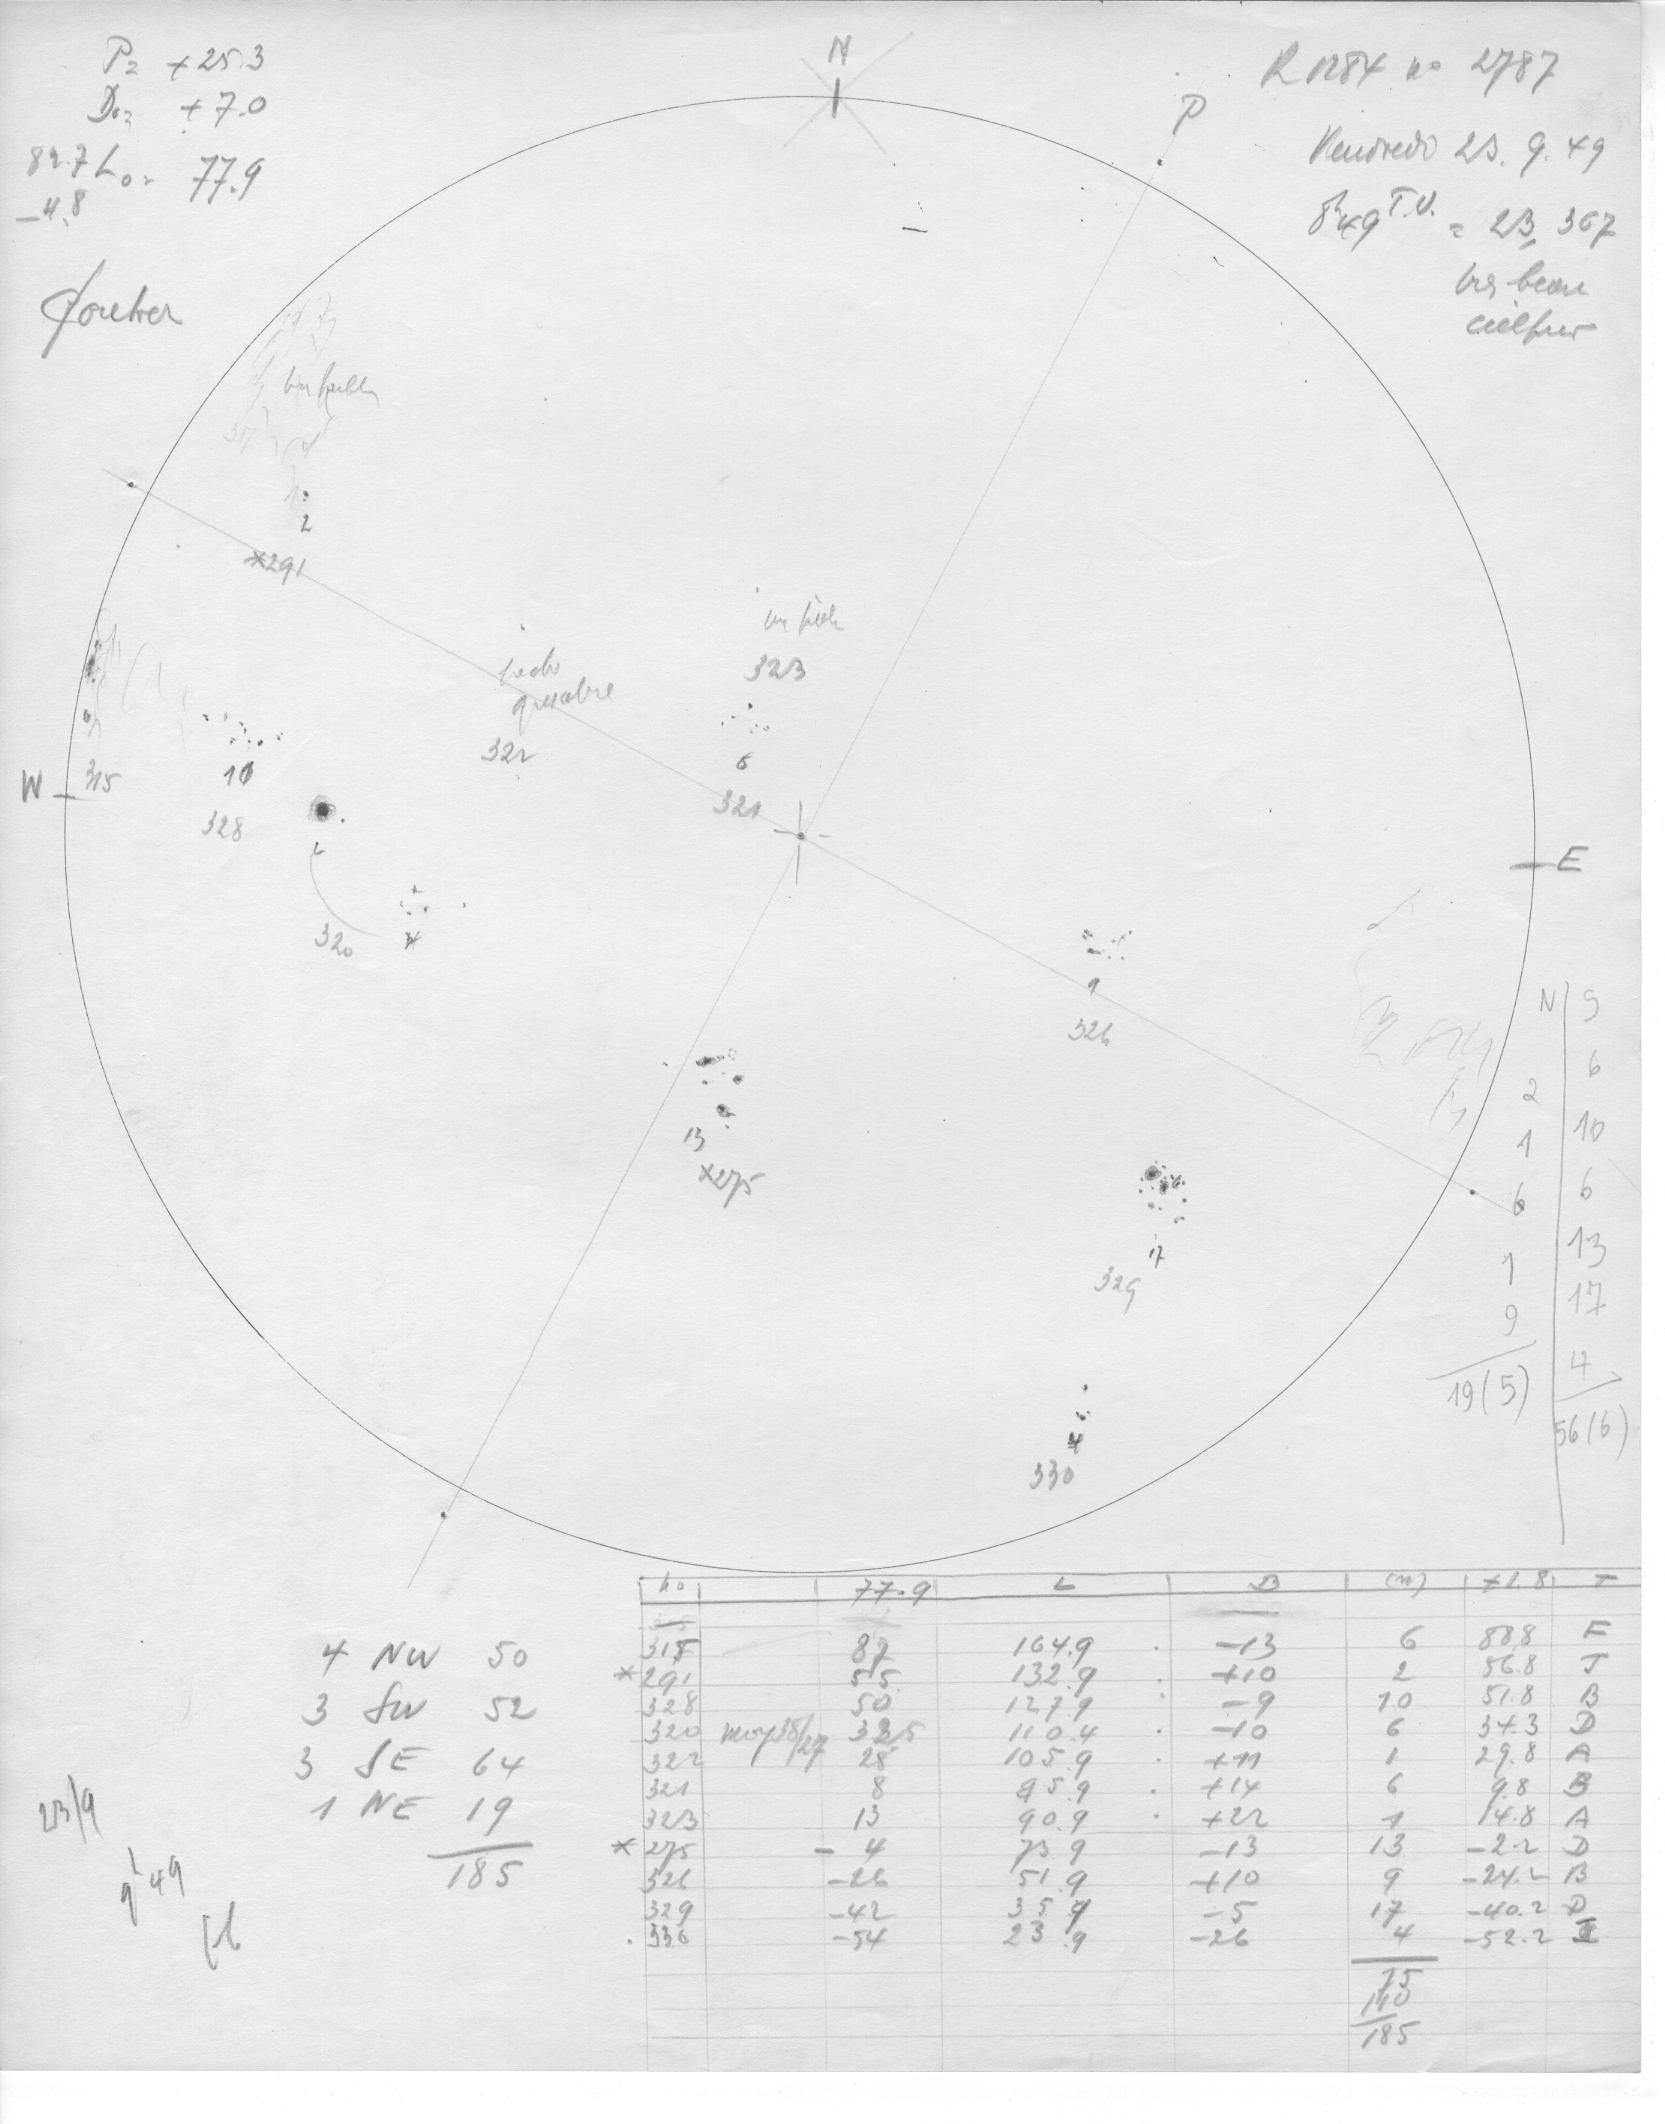 P= +25.3
D0= +7.0
82.7 L0= 77.9
-4.8
N
P
R 1284 no 2787
Vendredi 23. 9. 49
8h49 T.U. = 23,367
très beau
ciel pur
2
*291
323
322
6
321
315
W
10
328
320
E
9
326
13
*275
17
329
4
330
N S
6
2
10
1
6
6
13
1
17
9
4
19(5)
56(6)
no 77.9 L B (n) +1.8 T
315 87 164.9 -13 6 88.8 F
*291 55 132.9 +10 2 56.8 J
328 50 127.9 -9 10 51.8 B
320 moy 38/27 32.5 110.4 -10 6 34.3 D
322 28 105.9 +11 1 29.8 A
321 8 85.9 +14 6 9.8 B
323 13 90.9 +22 1 14.8 A
*275 -4 73.9 -13 13 -2.2 D
326 -26 51.9 +10 9 -24.2 B
329 -42 35.9 -5 17 -40.2 D
330 -54 23.9 -26 4 -52.2
75
110
185
4 NW 50
3 SW 52
3 SE 64
1 NE 19
185
23/9
9h49